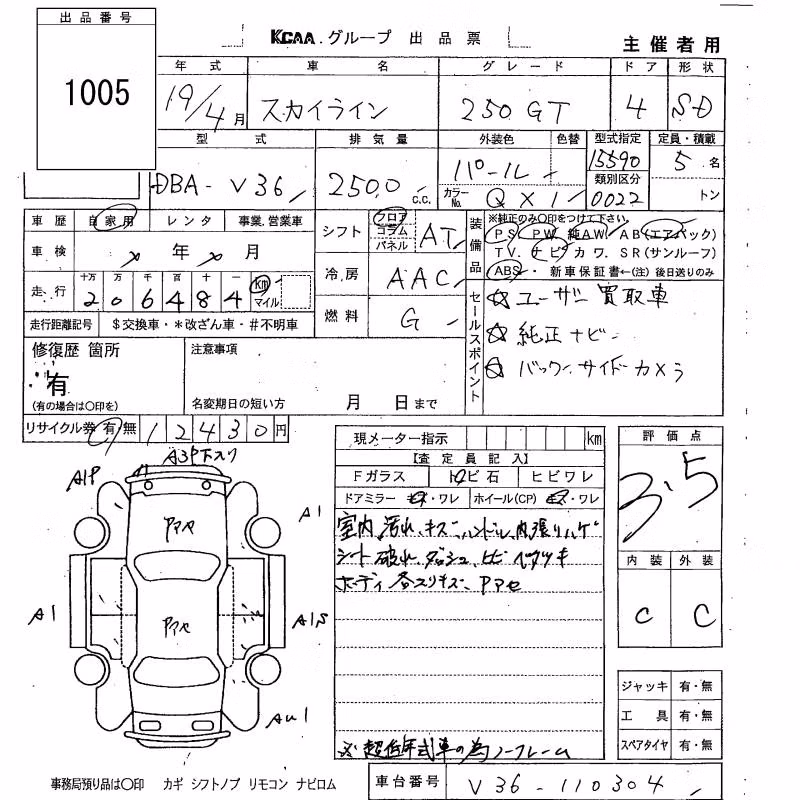 出品番号
1005
KCAA グループ 出品票
主催者用
年式 車名 グレード ドア 形状
19/4月 スカイライン 250GT 4 SD
型式 排気量 外装色 色替 型式指定 定員・積載
DBA-V36 2500 C.C. パール 15590 5名
カラーNo. QX1 類別区分 0022 トン
車歴 自家用 レンタ 事業.営業車
シフト フロア コラム パネル AT
装備品 ※純正のみ○印をつけて下さい。
PS PW 純AW AB(エアバック)
TV. ナビ カワ. SR(サンルーフ)
ABS ・ 新車保証書←(注) 後日送りのみ
車検 年 月
冷房 AAC
走行 十万 万 千 百 十 一 km マイル
2 0 6 4 8 4
燃料 G
走行距離記号 $交換車・*改ざん車・#不明車
セールスポイント
☆ ユーザー買取車
☆ 純正ナビ
☆ バック、サイドカメラ
修復歴 箇所
有
(有の場合は○印を)
注意事項
名変期日の短い方 月 日まで
リサイクル券 有・無 12430円
現メーター指示 km
【査定員記入】
Fガラス トビ石 ヒビワレ
ドアミラー キズ・ワレ ホイール(CP) キズ・ワレ
室内汚れ、キズ、ハンドル、内張りハゲ
シート破れ、ダッシュ、ヒビ ベタツキ
ボディ各スリキズ、Pアセ
※超低年式車の為ノークレーム
評価点
3.5
内装 外装
C C
ジャッキ 有・無
工具 有・無
スペアタイヤ 有・無
A3P下スリ
A1P
A1
Pアセ
A1
Pアセ
A1S
AU1
事務局預り品は○印 カギ シフトノブ リモコン ナビロム
車台番号 V36-110304